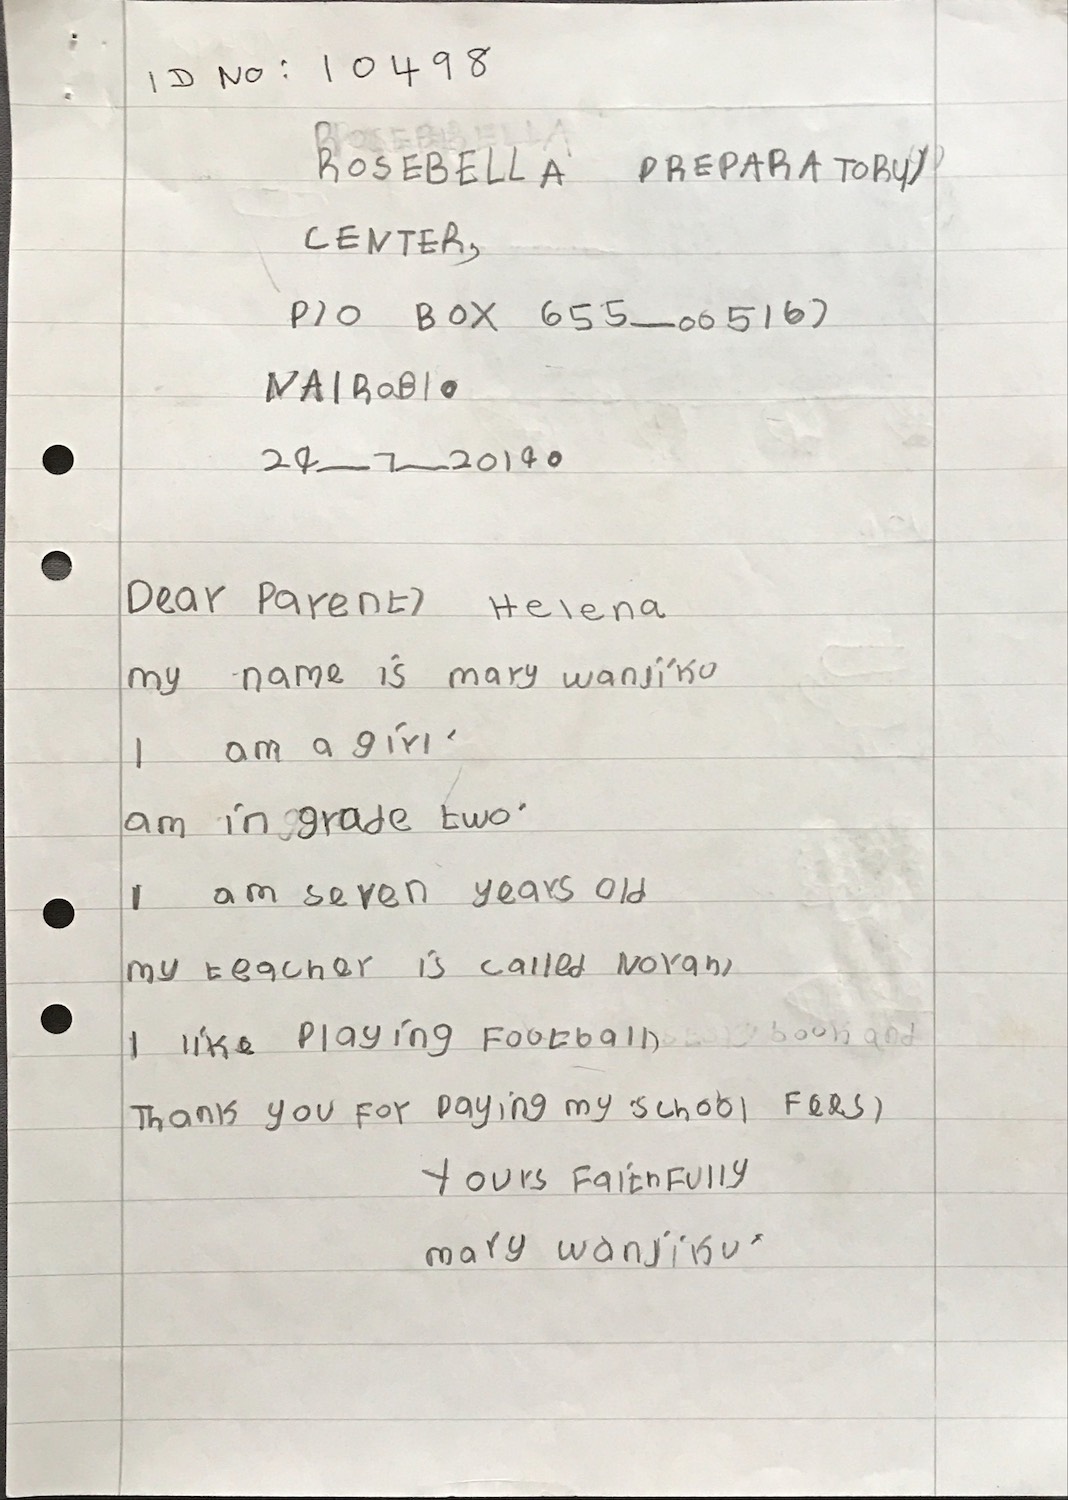 ID NO: 10498
ROSEBELLA PREPARATORY,
CENTER,
P,O BOX 655_00516,
NAIROBI.
24_7_2014.
Dear Parent, Helena
my name is mary wanjiku
I am a girl.
am in grade two.
I am seven years old
my teacher is called Norah,
I like Playing Football,
Thank you For paying my school Fees,
Yours FaithFully
mary wanjiku.